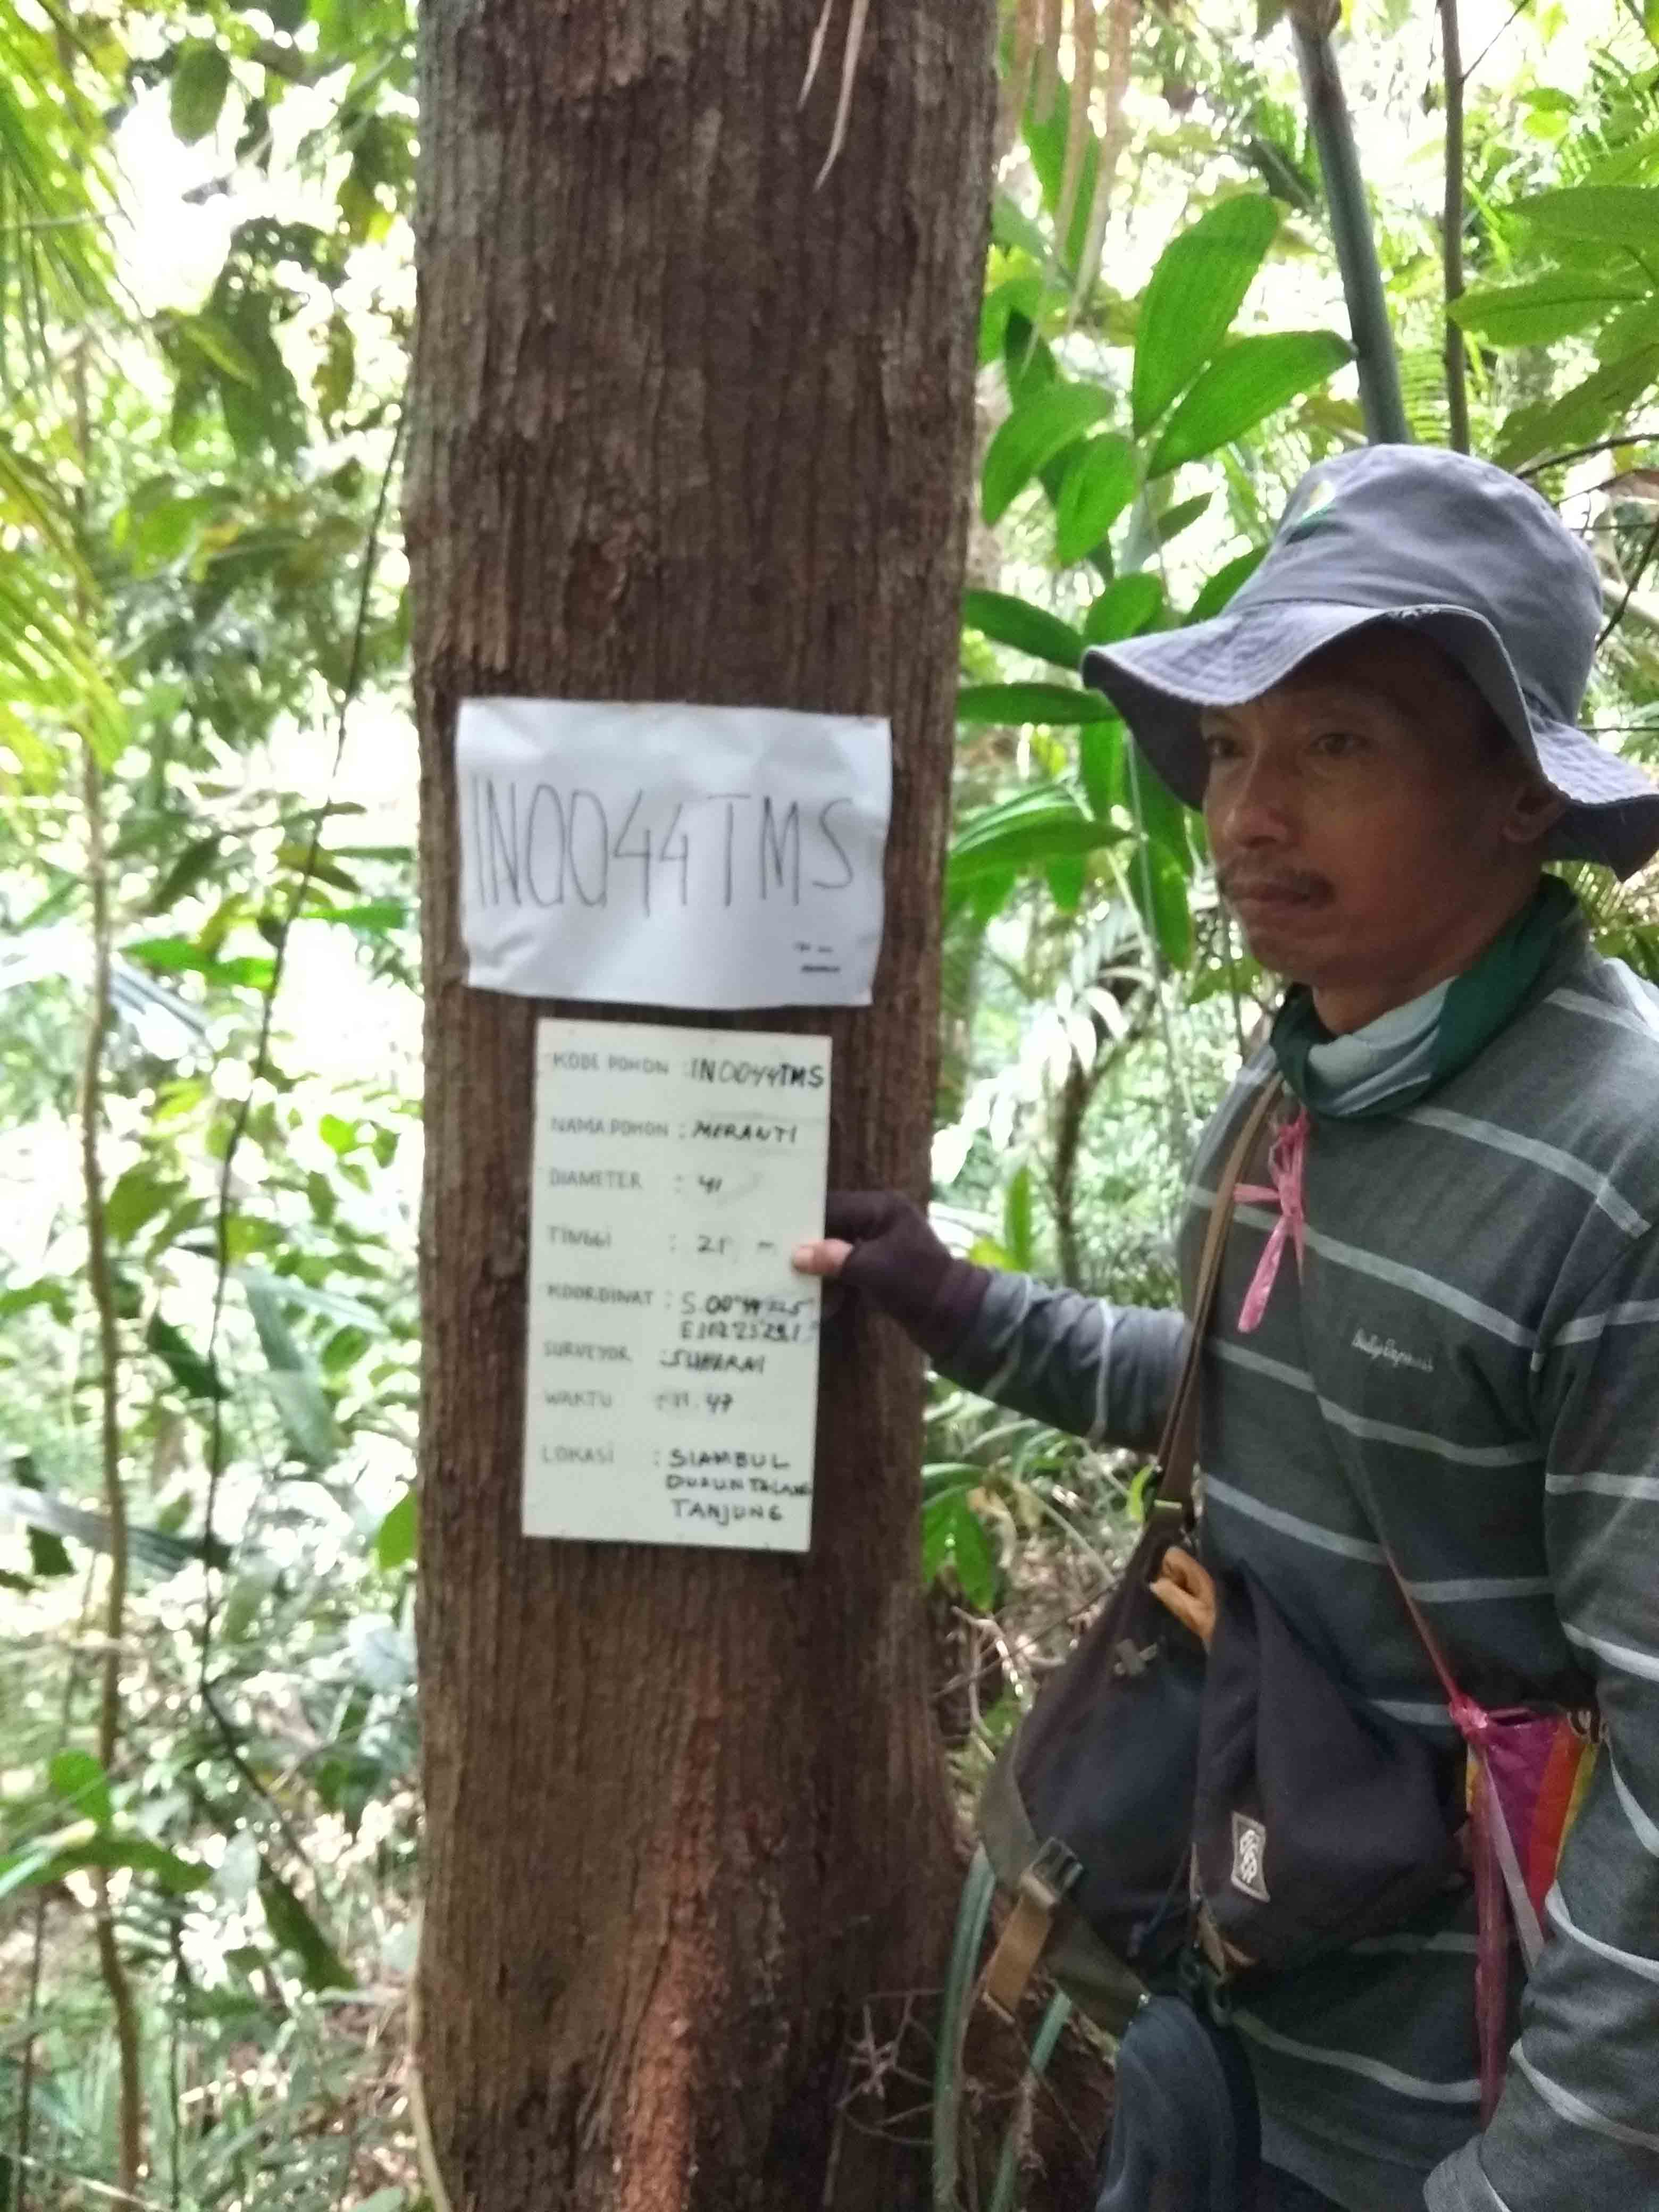 IN0044TMS
KODE POHON : IN0044TMS
NAMA POHON : MERANTI
DIAMETER : 41
TINGGI : 21 m
KOORDINAT :
SURVEYOR :
WAKTU :
LOKASI : SIAMBUL
DUSUN TALANG
TANJUNG